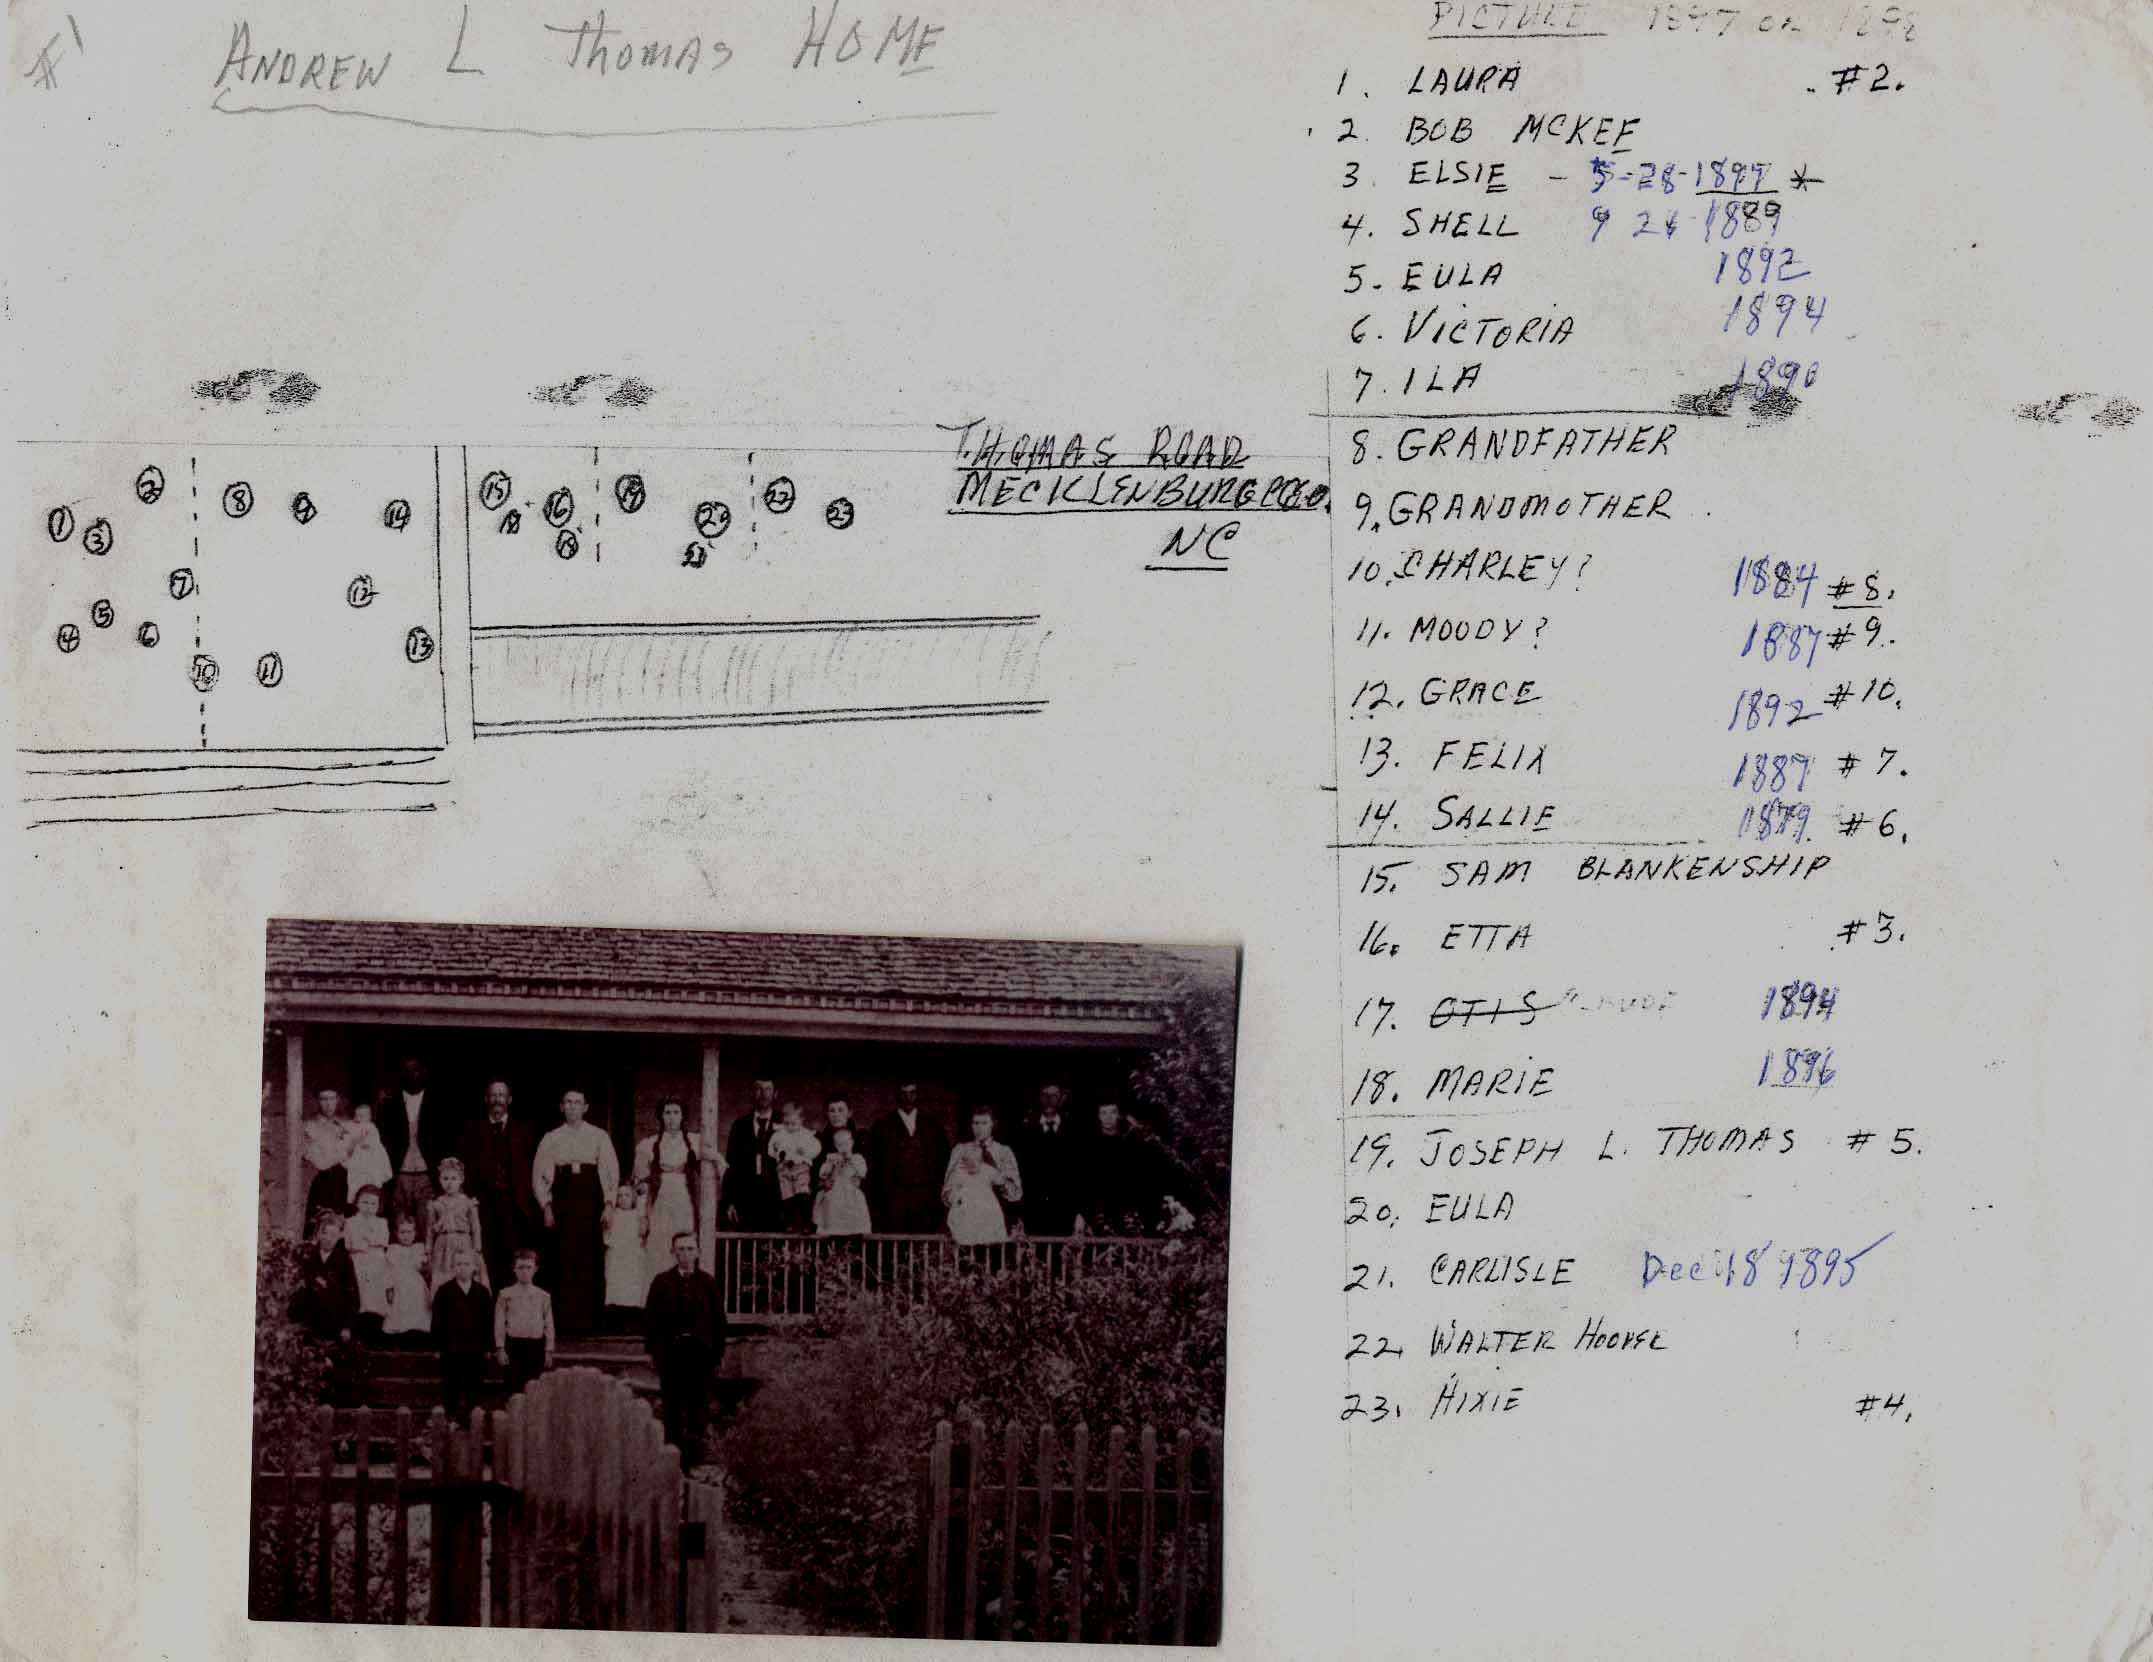 #1
ANDREW L Thomas HOME
PICTURE 1897 OR 1898
1. LAURA #2.
2. BOB MCKEE
3. ELSIE - 5-28-1897 *
4. SHELL 9 24 1889
5. EULA 1892
6. VICTORIA 1894
7. ILA 1890
8. GRANDFATHER
9. GRANDMOTHER
10. CHARLEY? 1884 #8.
11. MOODY? 1887 #9.
12. GRACE 1892 #10.
13. FELIX 1887 #7.
14. SALLIE 1879 #6.
15. SAM BLANKENSHIP
16. ETTA #3.
17. OTIS 1894
18. MARIE 1896
19. JOSEPH L. THOMAS #5.
20. EULA
21. CARLISLE Dec 18 1895
22. WALTER HOOVER
23. HIXIE #4.
THOMAS ROAD
MECKLENBURG CO.
NC
2 8 9 14
1 3
7 12
5
4 6 13
10 11
15 16 19 20 22 23
18 21